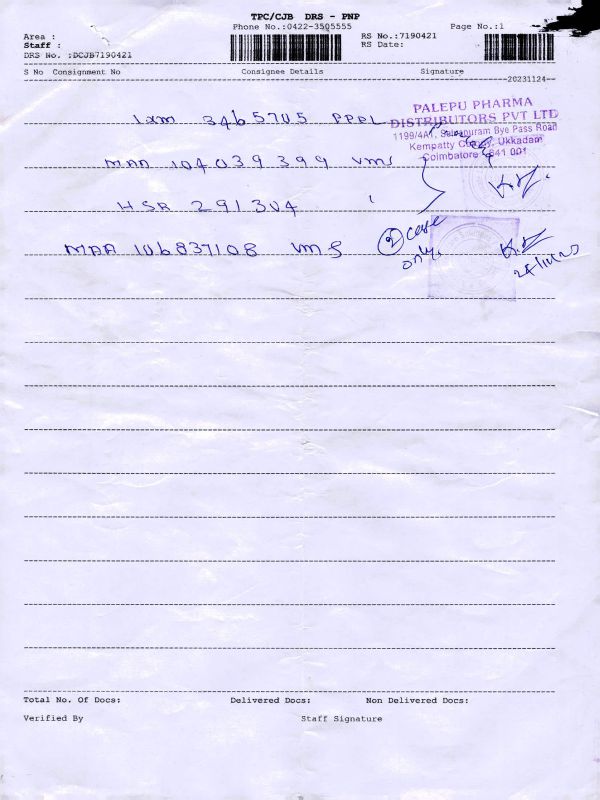 TPC/CJB DRS - PNP
Phone No.:0422-3505555
Page No.:1
Area :
RS No.:7190421
Staff :
RS Date:
DRS No. :DCJB7190421
S No Consignment No Consignee Details Signature
20231124
PALEPU PHARMA
DISTRIBUTORS PVT LTD
1199/4A1, Bye Pass Road
Kempatty Ukkadam
Coimbatore 641 001
3465705 PPPL
MAA 104039399 VMS
HSR 291304
MAA 106837108 VMS
2 case
only.
Total No. Of Docs: Delivered Docs: Non Delivered Docs:
Verified By Staff Signature